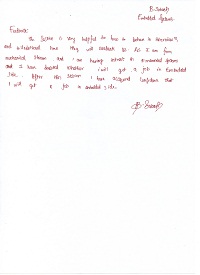 B. Suresh
Embedded Systems
Feedback:
The Session is very helpful for how to behave in interviews,
and interviewer how they will evaluate us. As I am from
mechanical stream and I am having interest in embedded systems
and I have doubted whether I will get a job in Embedded
side. After this session I have acquired confidence that
I will get a job in embedded side.
B. Suresh